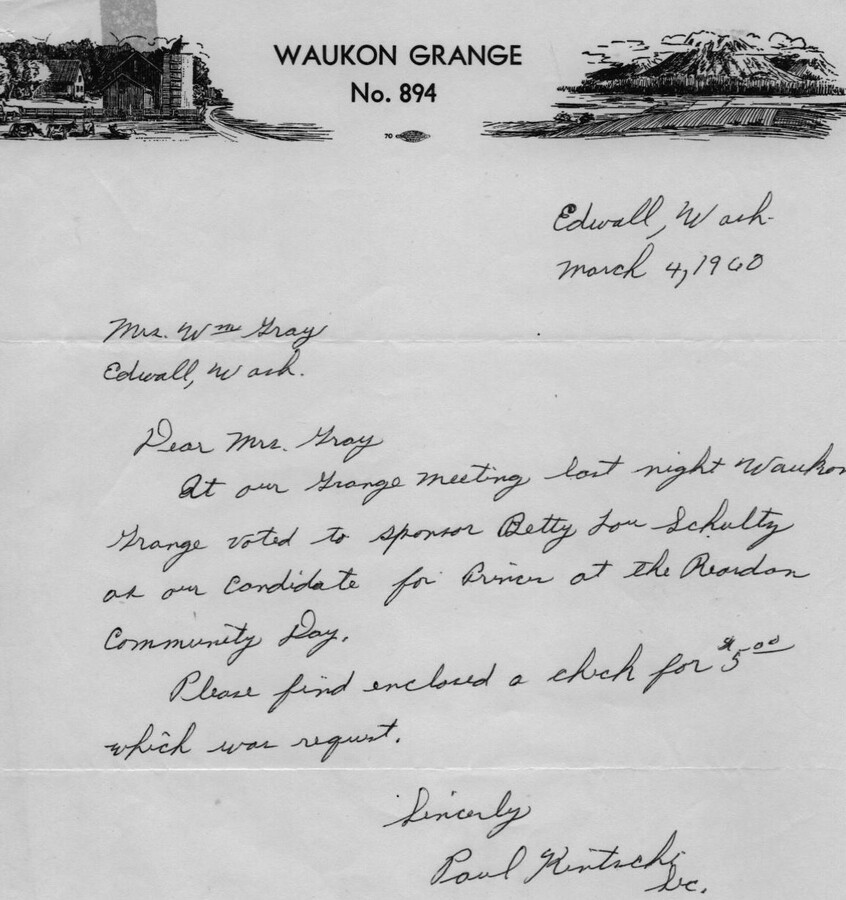 WAUKON GRANGE
No. 894
70
Edwall, Wash.
March 4, 1960
Mrs. Wm Gray
Edwall, Wash.
Dear Mrs. Gray
At our Grange meeting last night Waukon
Grange voted to sponsor Betty Lou Schultz
as our candidate for Princes at the Reardan
Community Day.
Please find enclosed a check for $5.00
which was request.
Sincerly
Paul Kintschi
Sec.